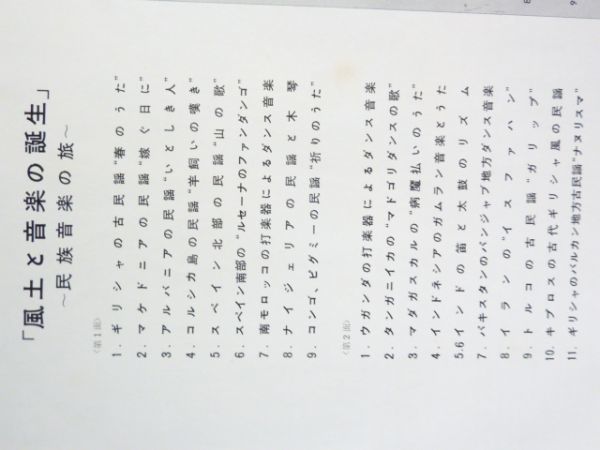 「風土と音楽の誕生」
～民族音楽の旅～
〈第1面〉
1. ギリシャの古民謡“春のうた”
2. マケドニアの民謡“嫁ぐ日に”
3. アルバニアの民謡“いとしき人”
4. コルシカ島の民謡“羊飼いの嘆き”
5. スペイン北部の民謡“山の歌”
6. スペイン南部の“ルセーナのファンダンゴ”
7. 南モロッコの打楽器によるダンス音楽
8. ナイジェリアの民謡と木琴
9. コンゴ、ピグミーの民謡“祈りのうた”
〈第2面〉
1. ウガンダの打楽器によるダンス音楽
2. タンガニイカの“マドゴリダンスの歌”
3. マダガスカルの“病魔払いのうた”
4. インドネシアのガムラン音楽とうた
5.6 インドの笛と太鼓のリズム
7. パキスタンのパンジャブ地方ダンス音楽
8. イランの“イスファハン”
9. トルコの古民謡“ガリップ”
10. キプロスの古代ギリシャ風の民謡
11. ギリシャのバルカン地方古民謡“ナヌリスマ”